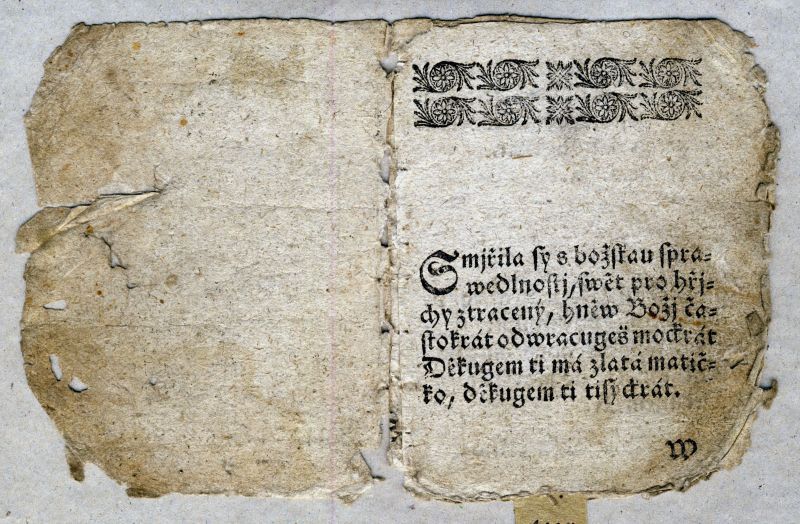 Smjřila sy s božskau spra-
wedlnostj, swět pro hřj-
chy ztracený, hněw Božj ča-
stokrát odwracugeš mockrát
Děkugem ti má zlatá matič-
ko, děkugem ti tisyckrát.
W